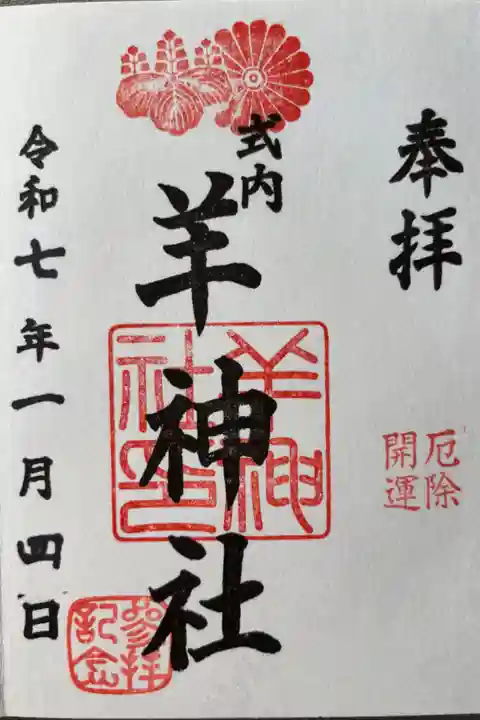 奉拝
厄除
開運
式内
羊神社
羊神
社印
令和七年一月四日
參拝
記念